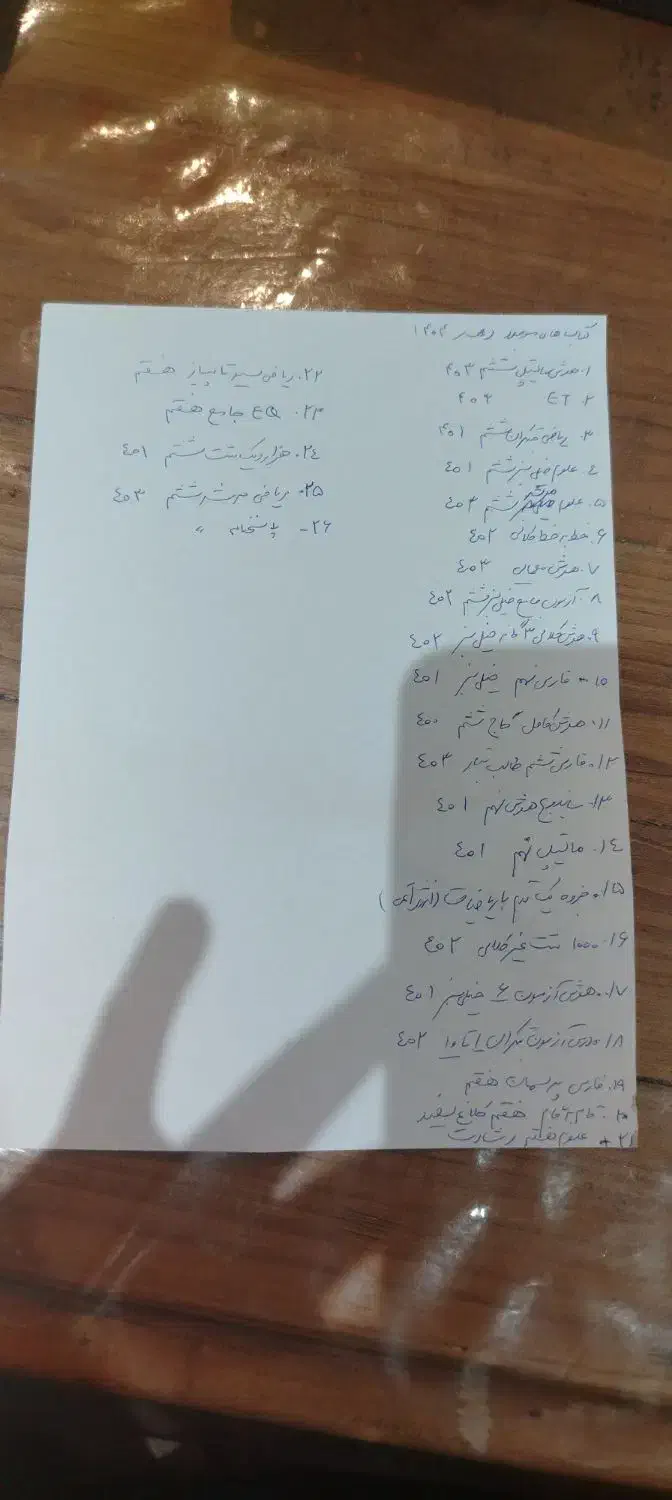 کتاب های موجود دهمر ۱۴۰۴
۱. هوش ماتیلپ ششم ۴۰۳
۲. ET ۴۰۴
۳. ریاضی تیزهوشان ششم ۴۰۱
۴. علوم خیلی سبز ششم ۴۰۱
۵. علوم مرشد ششم ۴۰۳
۶. خط به خط کلانی ۴۰۲
۷. هوش معمایی ۴۰۳
۸. آزمون جامع خیلی سبز ششم ۴۰۲
۹. هوش کلامی ۳ گانه خیلی سبز ۴۰۲
۱۰. فارسی نهم خیلی سبز ۴۰۱
۱۱. هوش کامل گاج ششم ۴۰۰
۱۲. فارسی ششم طالب تبار ۴۰۳
۱۳. هوش نهم ۴۰۱
۱۴. نهم ۴۰۱
۱۵. جزوه یک قدم با ریاضیات
۱۶. ۱۰۰۰ تست غیر کلامی ۴۰۲
۱۷. هوش آزمون ۶ خیلی سبز ۴۰۱
۱۸. آزمون ۴۰۲
۱۹. فارسی پرسمان هفتم
۲۰. گام به گام هفتم کلاغ سفید
۲۱. علوم هفتم رشادت
۲۲. ریاضی سیر تا پیاز هفتم
۲۳. EQ جامع هفتم
۲۴. هزار و یک تست ششم ۴۰۱
۲۵. ریاضی مرشد ششم ۴۰۳
۲۶- پاسخنامه "